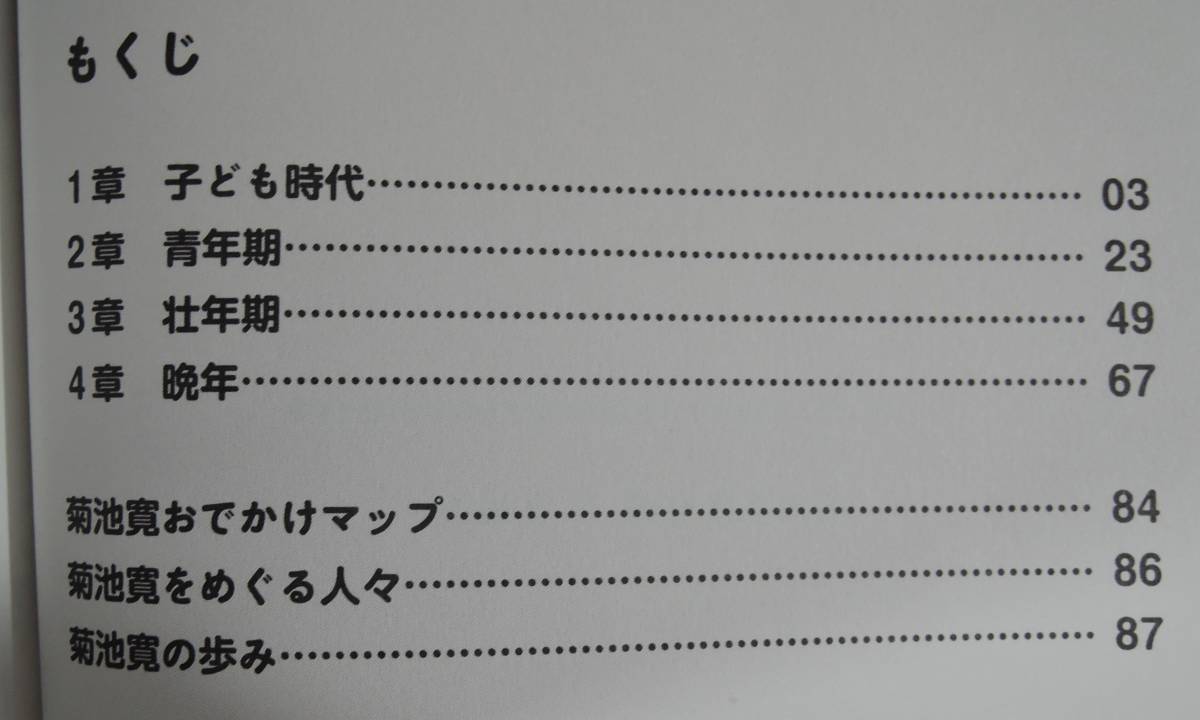 もくじ
1章 子ども時代……………………………………… 03
2章 青年期……………………………………… 23
3章 壮年期……………………………………… 49
4章 晩年……………………………………… 67
菊池寛おでかけマップ……………………………………… 84
菊池寛をめぐる人々……………………………………… 86
菊池寛の歩み……………………………………… 87